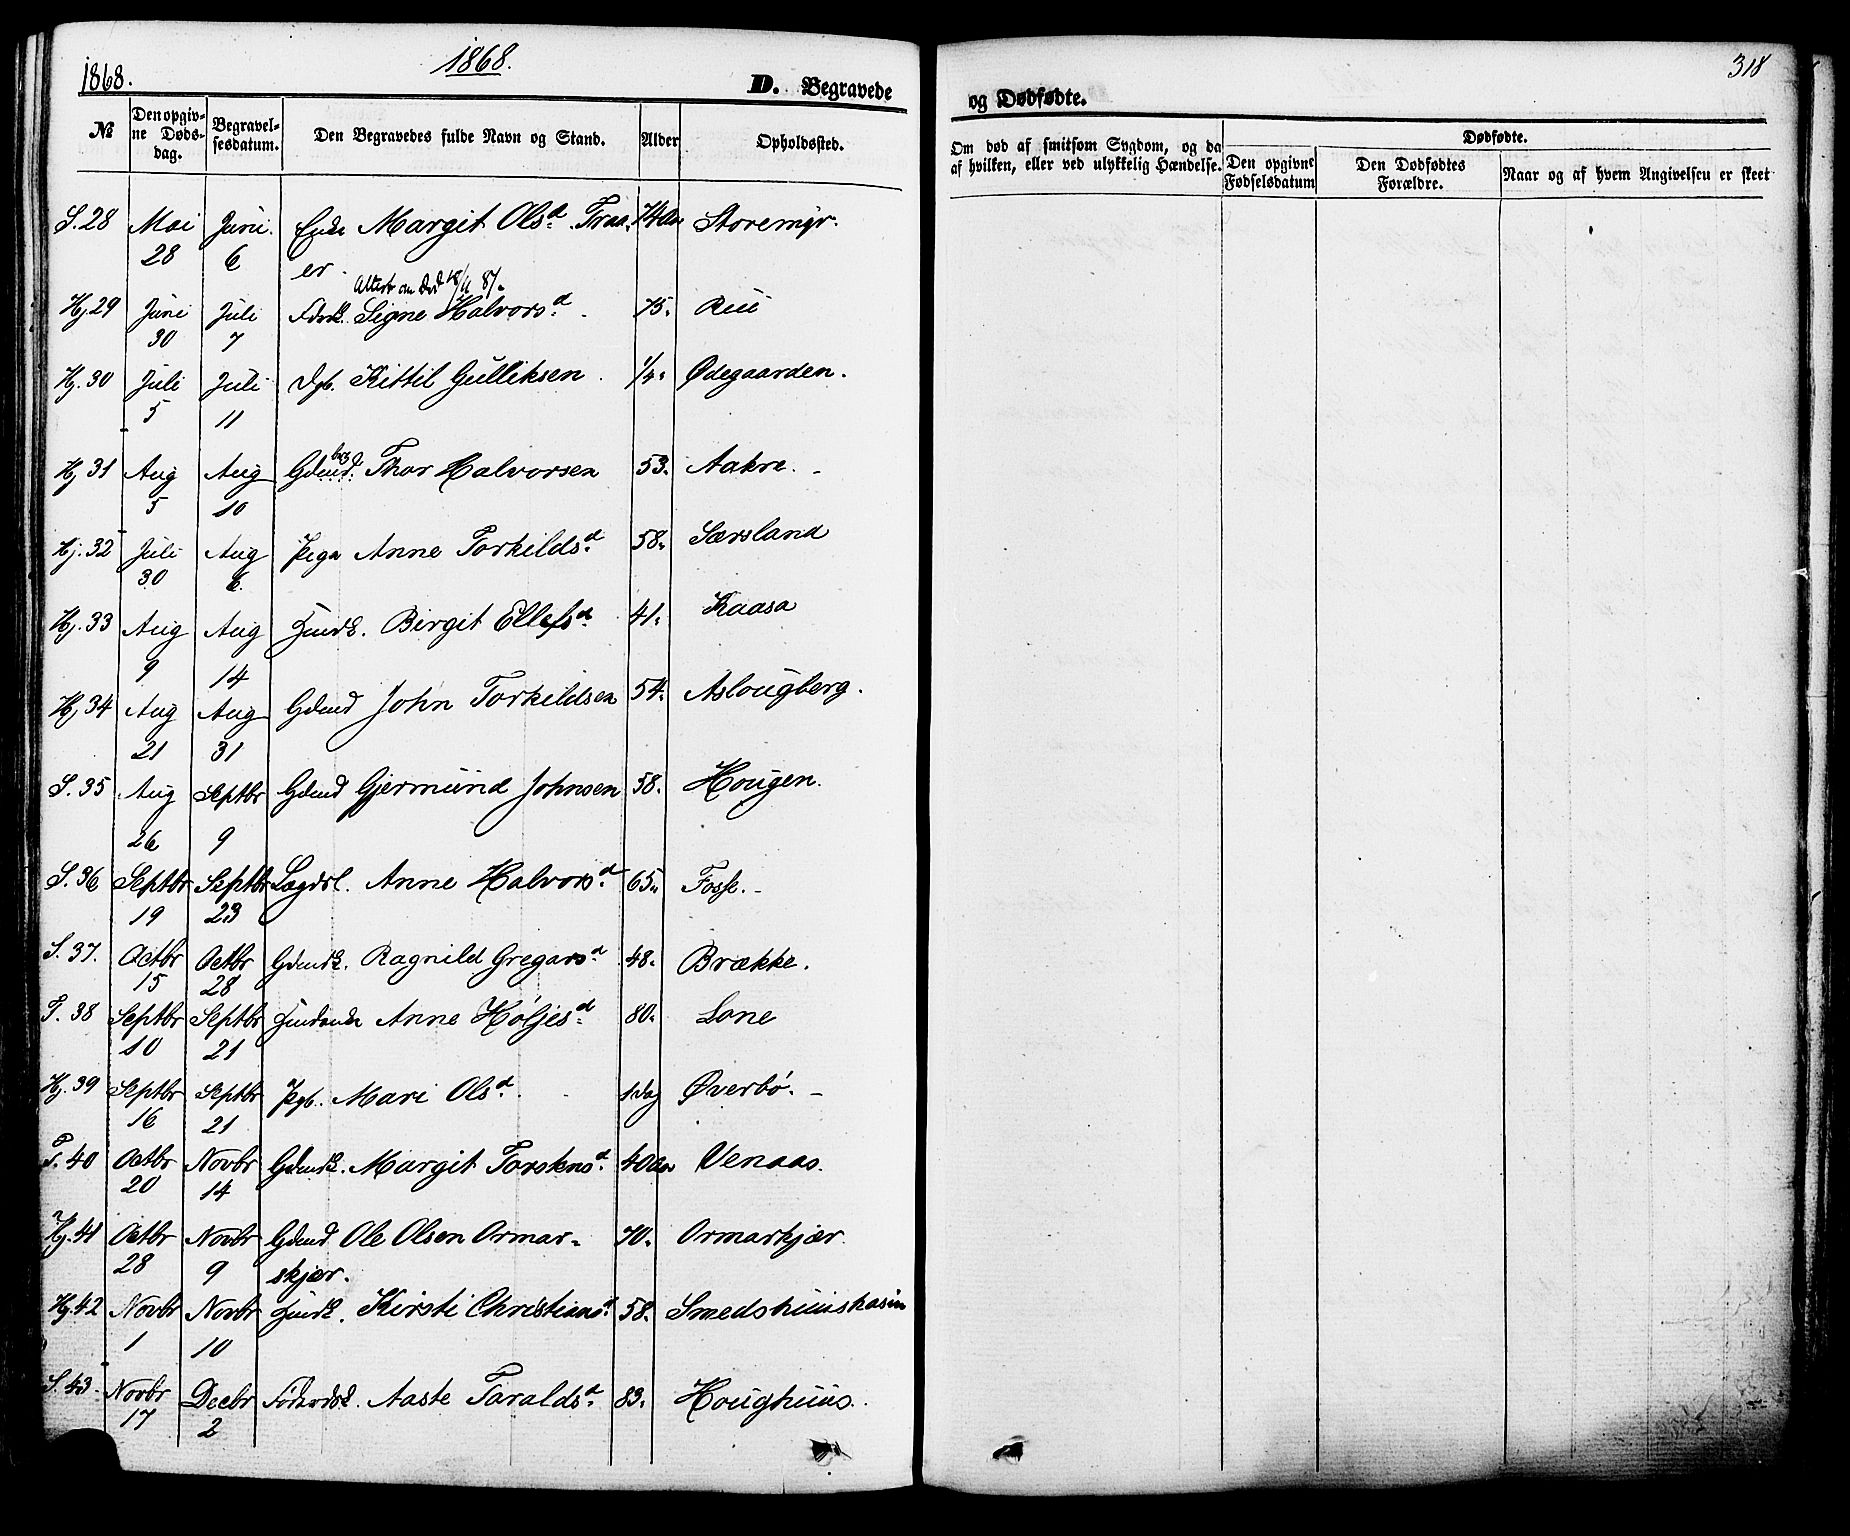 1868.
1868.
D. Begravede
№
Den opgiv-
ne Døds-
dag.
Begravel-
sesdatum.
Den Begravedes fulde Navn og Stand.
Alder
Opholdssted.
S. 28 Mai 28 Juni 6 Enke Margit Olsd. 74 Aar Storemyr.
er.
Attest om Død
Hj. 29 Juni 30 Juli 7 Signe Halvorsd. 75. Rui
Hj. 30 Juli 5 Juli 11 Kittil Gulliksen 1/4. Ødegaarden.
Hj. 31 Aug 5 Aug 10 Gdmd. Thor Halvorsen 53. Aakre.
Hj. 32 Juli 30 Aug 6 Pige Anne Torkildsd. 58. Særsland
Hj. 33 Aug 9 Aug 14 Birgit Ellefsd. 41. Kaasa
Hj. 34 Aug 21 Aug 31 Gdmd John Torkildsen 54. Aslougberg.
S. 35 Aug 26 Septbr 9 Gdmd Gjermund Johnsen 58. Hougen.
S. 36 Septbr 19 Septbr 23 Lægdsl. Anne Halvorsd. 65. Fosse.
S. 37. Octbr 15 Octbr 28 Gdmdk. Ragnild Gregarsd. 48. Brække.
T. 38 Septbr 10 Septbr 21 Anne Høljesd. 80. Lone
Hj. 39 Septbr 16 Septbr 21 Pgb. Mari Olsd. 1 Dag Øverbø.
T. 40 Octbr 20 Novbr 14 Gdmdk. Margit Torstensd. 40 Aar Venaas.
Hj. 41 Octbr 28 Novbr 9 Gdmd Ole Olsen Ormar-
skjær. 70. Ormarkjær
Hj. 42 Novbr 1 Novbr 10 Kirsti Christiansd. 58. Smedshuuskasin
S. 43 Novbr 17 Decbr 2 Aaste Taraldsd. 83. Houghuus.
318
og Dødfødte.
Om død af smitsom Sygdom, og da
af hvilken, eller ved ulykkelig Hændelse.
Dødfødte.
Den opgivne
Fødselsdatum
Den Dødfødtes
Forældre.
Naar og af hvem Angivelsen er skeet